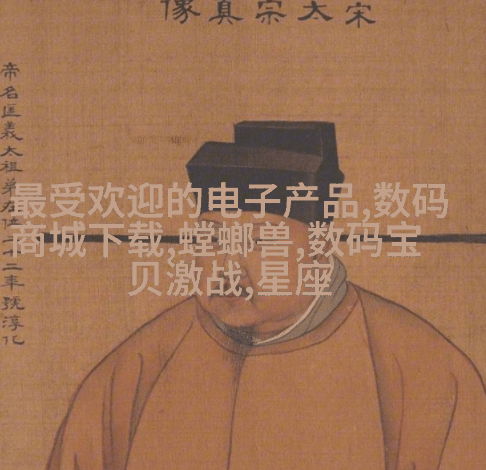 宋太宗真像
帝名匡義太祖弟在位二十二年號淳化
最受欢迎的电子产品,数码
商城下载,螳螂兽,数码宝
贝激战,星座